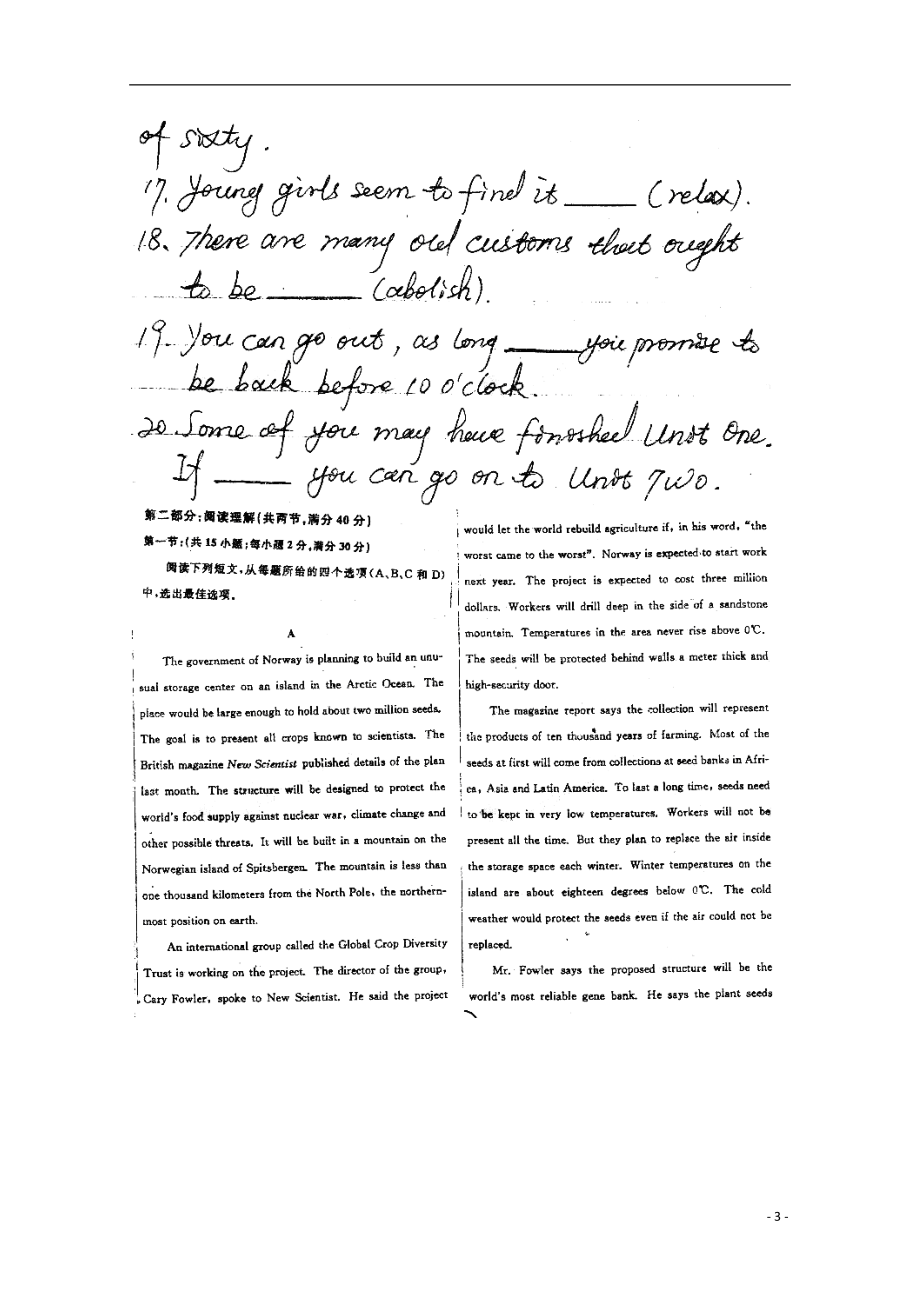 of sixty.
17. Young girls seem to find it _____ (relax).
18. There are many old customs that ought
to be _____ (abolish).
19. You can go out, as long _____ you promise to
be back before 10 o'clock.
20. Some of you may have finished Unit One.
If _____ you can go on to Unit Two.
第二部分:阅读理解(共两节,满分 40 分)
第一节:(共 15 小题;每小题 2 分,满分 30 分)
阅读下列短文,从每题所给的四个选项(A、B、C 和 D)
中,选出最佳选项。
A
The government of Norway is planning to build an unu-
sual storage center on an island in the Arctic Ocean. The
place would be large enough to hold about two million seeds.
The goal is to present all crops known to scientists. The
British magazine New Scientist published details of the plan
last month. The structure will be designed to protect the
world's food supply against nuclear war, climate change and
other possible threats. It will be built in a mountain on the
Norwegian island of Spitsbergen. The mountain is less than
one thousand kilometers from the North Pole, the northern-
most position on earth.
An international group called the Global Crop Diversity
Trust is working on the project. The director of the group,
Cary Fowler, spoke to New Scientist. He said the project
would let the world rebuild agriculture if, in his word, "the
worst came to the worst". Norway is expected to start work
next year. The project is expected to cost three million
dollars. Workers will drill deep in the side of a sandstone
mountain. Temperatures in the area never rise above 0℃.
The seeds will be protected behind walls a meter thick and
high-security door.
The magazine report says the collection will represent
the products of ten thousand years of farming. Most of the
seeds at first will come from collections at seed banks in Afri-
ca, Asia and Latin America. To last a long time, seeds need
to be kept in very low temperatures. Workers will not be
present all the time. But they plan to replace the air inside
the storage space each winter. Winter temperatures on the
island are about eighteen degrees below 0℃. The cold
weather would protect the seeds even if the air could not be
replaced.
Mr. Fowler says the proposed structure will be the
world's most reliable gene bank. He says the plant seeds
- 3 -